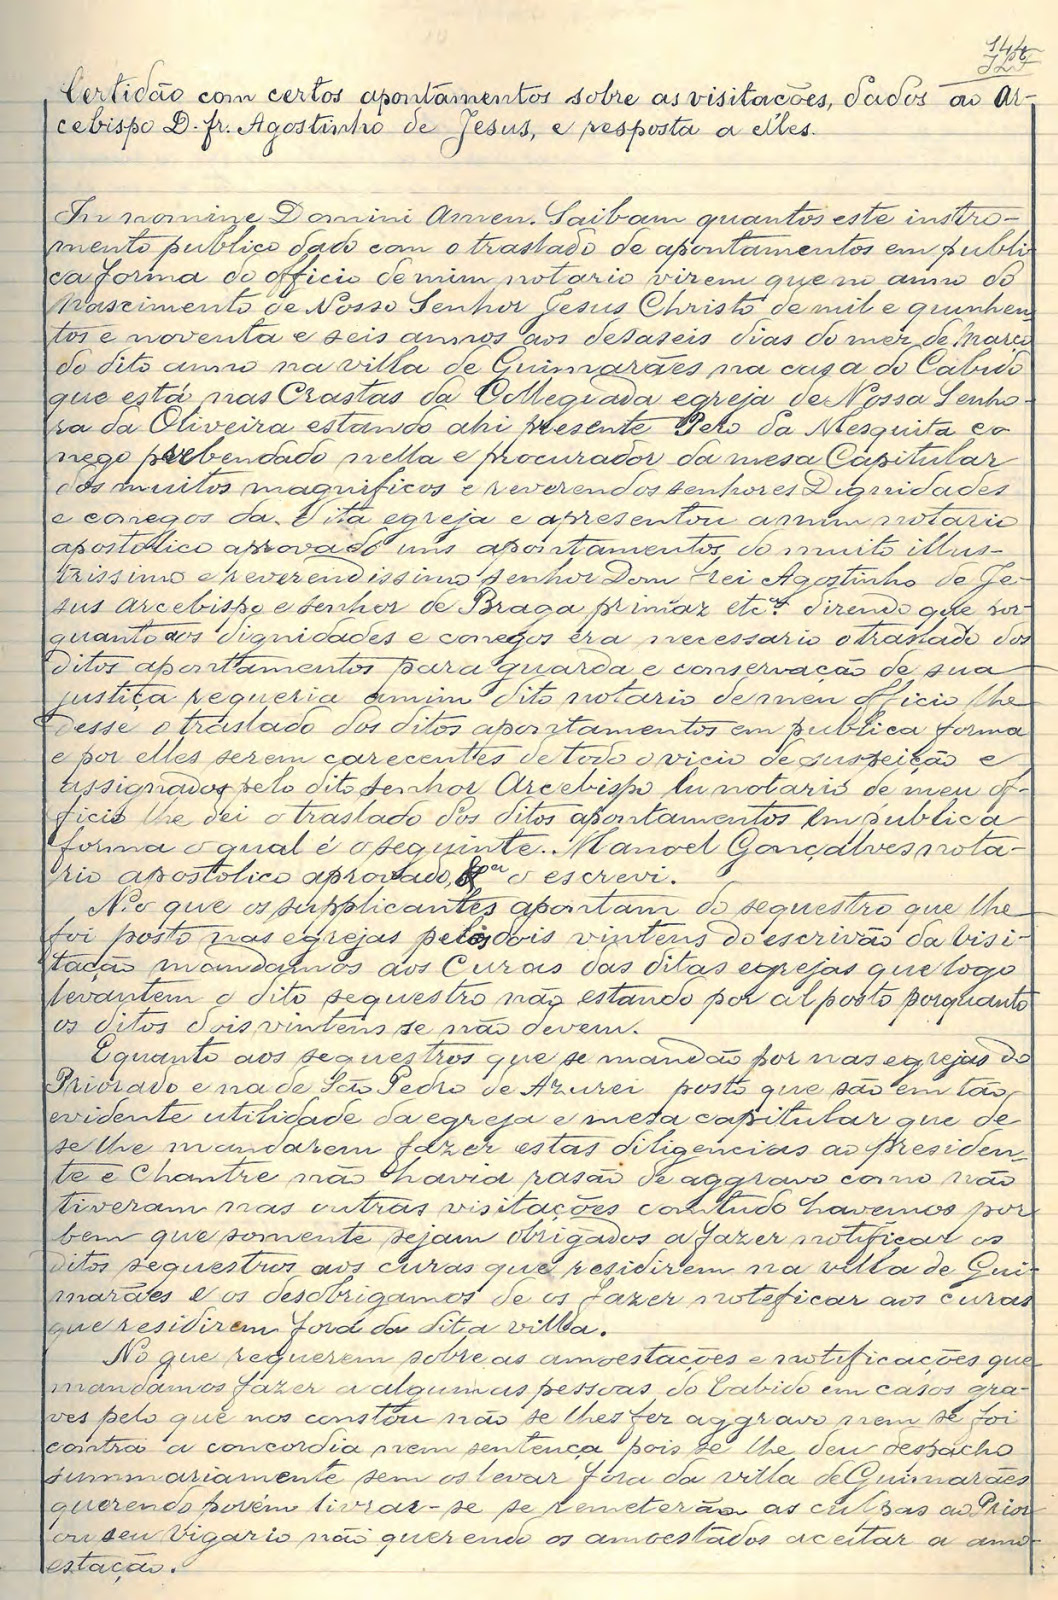 144
Certidão com certos apontamentos sobre as visitações, dados ao Ar-
cebispo D. fr. Agostinho de Jesus, e resposta a elles.
In nomine Domini Amen. Saibam quantos este instro-
mento publico dado com o traslado de apontamentos em publi-
ca forma do officio de mim notario virem que no anno do
Nascimento de Nosso Senhor Jesus Christo de mil e quinhen-
tos e noventa e seis annos aos desaseis dias do mez de Março
do dito anno na villa de Guimarães na casa do Cabido
que está nas Crastas da Collegiada egreja de Nossa Senho-
ra da Oliveira estando ahi presente Pero da Mesquita co-
nego prebendado nella e procurador da mesa Capitular
dos muitos magnificos e reverendos senhores Dignidades
e conegos da dita egreja e apresentou a mim notario
apostolico aprovado uns apontamentos do muito illus-
trissimo e reverendissimo senhor Dom Frei Agostinho de Je-
sus Arcebispo e senhor de Braga primaz etc.ª dizendo que por
quanto aos dignidades e conegos era necessario o traslado dos
ditos apontamentos para guarda e conservação de sua
justiça requeria a mim dito notario de meu officio lhe
desse o traslado dos ditos apontamentos em publica forma
e por elles serem carecentes de todo o vicio de suspeição e
assignados pelo dito senhor Arcebispo Eu notario de meu of-
ficio lhe dei o traslado dos ditos apontamentos em publica
forma o qual é o seguinte. Manoel Gonçalves nota-
rio apostolico aprovado o escrevi.
No que os supplicantes apontam do sequestro que lhe
foi posto nas egrejas pelos dois vintens do escrivão da visi-
tação mandamos aos Curas das ditas egrejas que logo
levantem o dito sequestro não estando por al posto porquanto
os ditos dois vintens se não devem.
E quanto aos sequestros que se mandão por nas egrejas do
Priorado e na de São Pedro de Azurei posto que são em tão
evidente utilidade da egreja e mesa capitular que de
se lhe mandarem fazer estas diligencias ao Presiden-
te e Chantre não havia rasão de aggravo como não
tiveram nas outras visitações comtudo havemos por
bem que somente sejam obrigados a fazer notificar os
ditos sequestros aos curas que residirem na villa de Gui-
marães e os desobrigamos de os fazer noteficar aos curas
que residirem fora da dita villa.
No que requerem sobre as amoestações e notificações que
mandamos fazer a algumas pessoas do Cabido em casos gra-
ves pelo que nos constou não se lhes fez aggravo nem se foi
contra a concordia nem sentença pois se lhe deu despacho
summariamente sem os levar fora da villa de Guimarães
querendo porém livrar-se se remeterão as culpas ao Prior
ou seu Vigario não querendo os amoestados aceitar a amo-
estação.